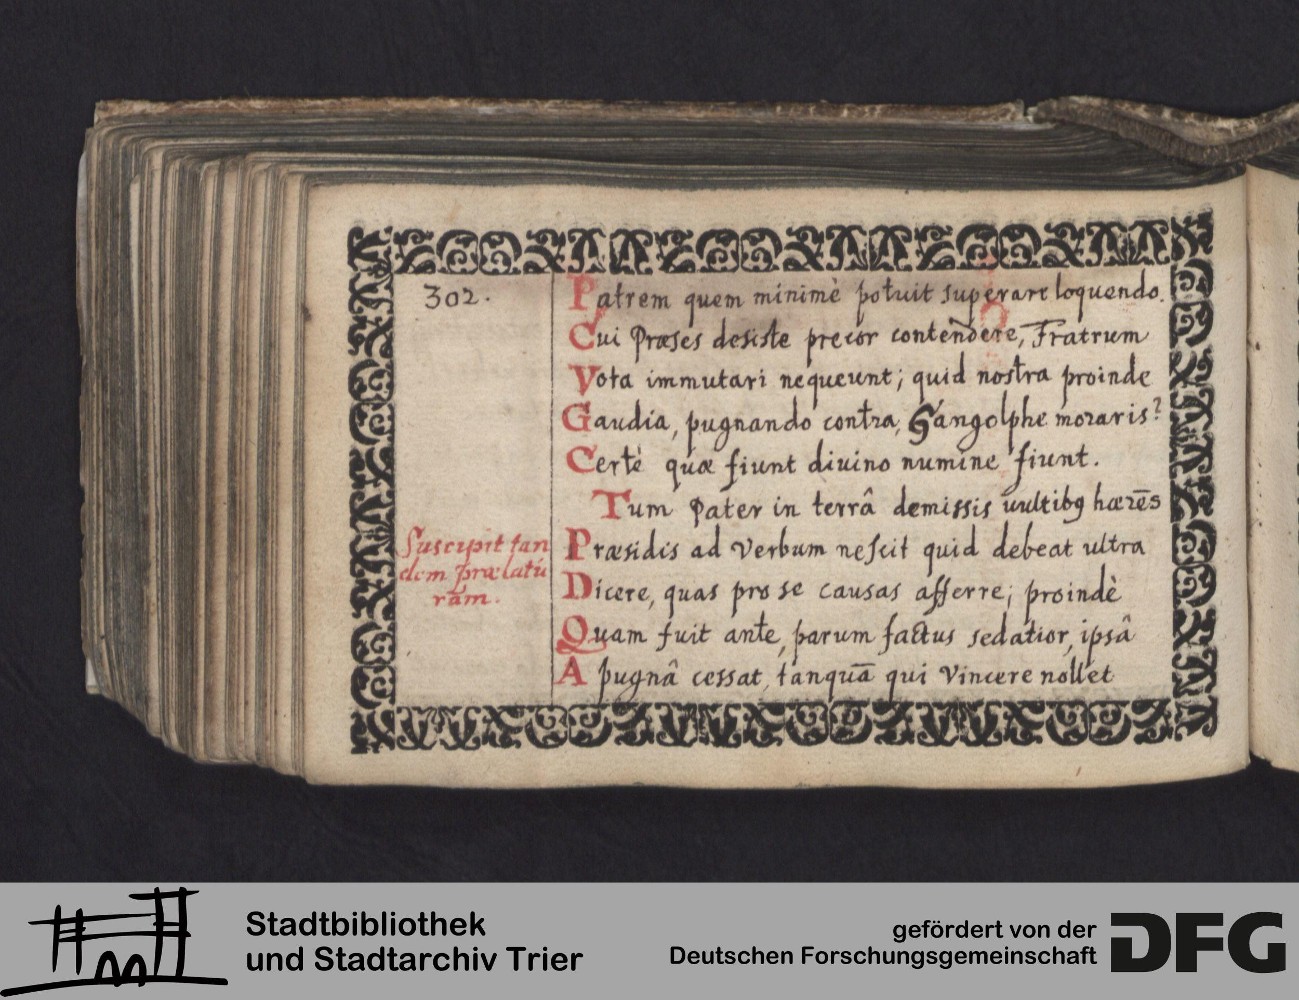 302.
Patrem quem minimè potuit superare loquendo.
Cui Præses desiste precor contendere, Fratrum
Vota immutari nequeunt; quid nostra proinde
Gaudia, pugnando contra, Gangolphe moraris?
Certè quæ fiunt diuino numine fiunt.
Tum Pater in terrâ demissis uultibꝫ hærēs
Suscipit tan
dem prælatu
ram.
Præsidis ad verbum nescit quid debeat ultra
Dicere, quas pro se causas afferre; proindè
Quam fuit ante, parum factus sedatior, ipsâ
A pugnâ cessat, tanquā qui vincere nollet
Stadtbibliothek
und Stadtarchiv Trier
gefördert von der
Deutschen Forschungsgemeinschaft
DFG